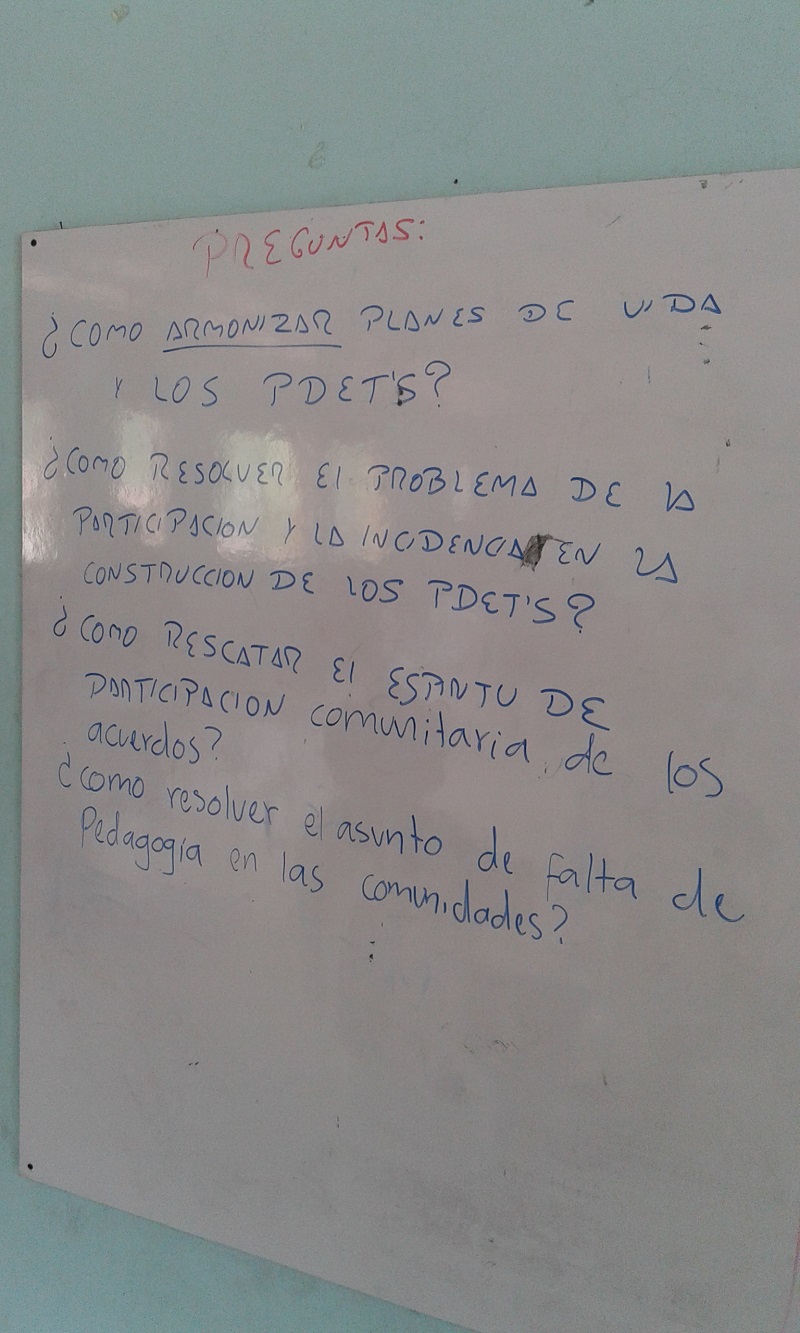 PREGUNTAS:
¿COMO ARMONIZAR PLANES DE VIDA
Y LOS PDET'S?
¿COMO RESOLVER El PROBLEMA DE LA
PARTICIPACION Y LA INCIDENCIA EN LA
CONSTRUCCION DE LOS PDET'S?
¿COMO RESCATAR El ESPIRITU DE
PARTICIPACION comunitaria de los
acuerdos?
¿como resolver el asunto de falta de
Pedagogía en las comunidades?